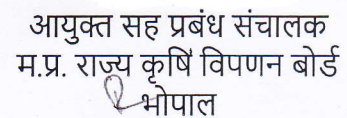 आयुक्त सह प्रबंध संचालक
म.प्र. राज्य कृषि विपणन बोर्ड
भोपाल